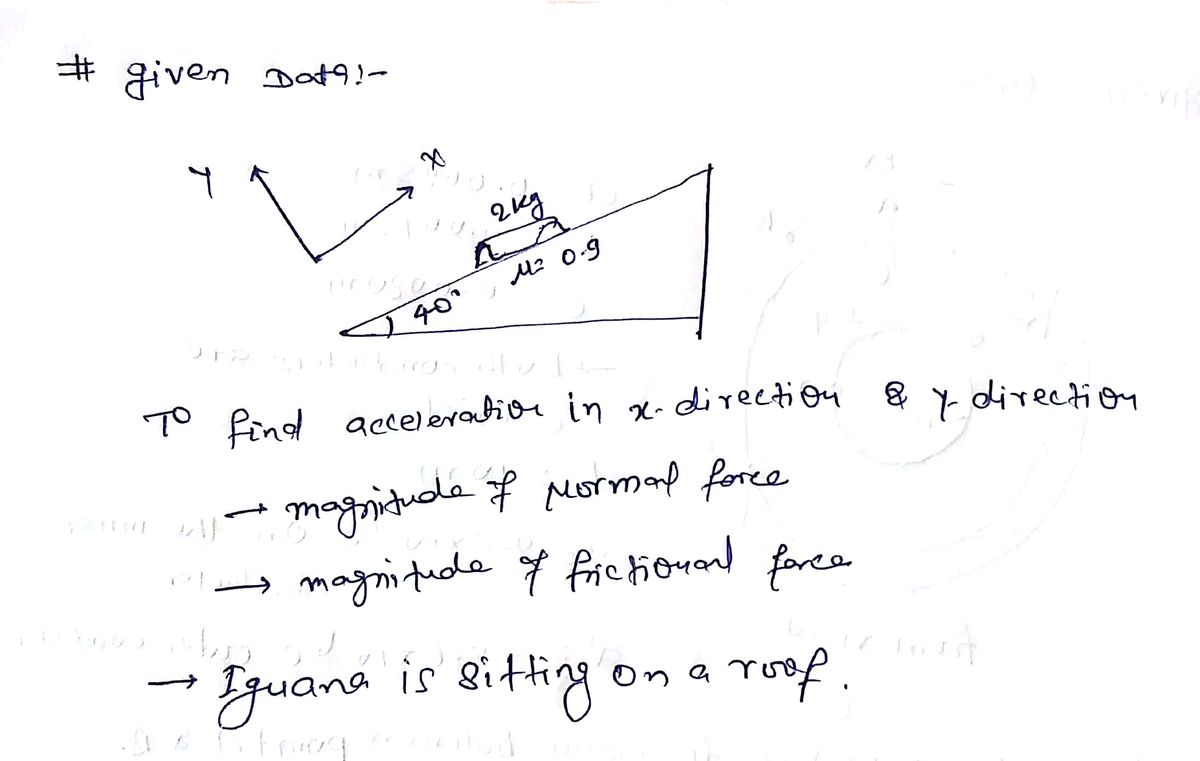 # given Data:-
Y
x
2kg
μ = 0.9
40°
To find acceleration in x-direction & y-direction
→ magnitude of Normal force
→ magnitude of frictional force
→ Iguana is sitting on a roof.